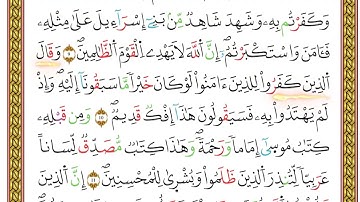 وَكَفَرْتُم بِهِۦ وَشَهِدَ شَاهِدٌ مِّنۢ بَنِےٓ إِسْرَآءِيلَ عَلَىٰ مِثْلِهِۦ
فَـَٔامَنَ وَاسْتَكْبَرْتُمُۥٓ إِنَّ اللَّهَ لَا يَهْدِے الْقَوْمَ الظَّٰلِمِينَ ۝٩ وَقَالَ
الَّذِينَ كَفَرُواْ لِلَّذِينَ ءَامَنُواْ لَوْ كَانَ خَيْرًا مَّا سَبَقُونَآ إِلَيْهِ وَإِذْ
لَمْ يَهْتَدُواْ بِهِۦ فَسَيَقُولُونَ هَٰذَآ إِفْكٌ قَدِيمٌ ۝١٠ وَمِن قَبْلِهِۦ
كِتَٰبُ مُوسَىٰٓ إِمَامًا وَرَحْمَةً وَهَٰذَا كِتَٰبٌ مُّصَدِّقٌ لِّسَانًا
عَرَبِيًّا لِّتُنذِرَ الَّذِينَ ظَلَمُواْ وَبُشْرَىٰ لِلْمُحْسِنِينَ ۝١١ إِنَّ الَّذِينَ